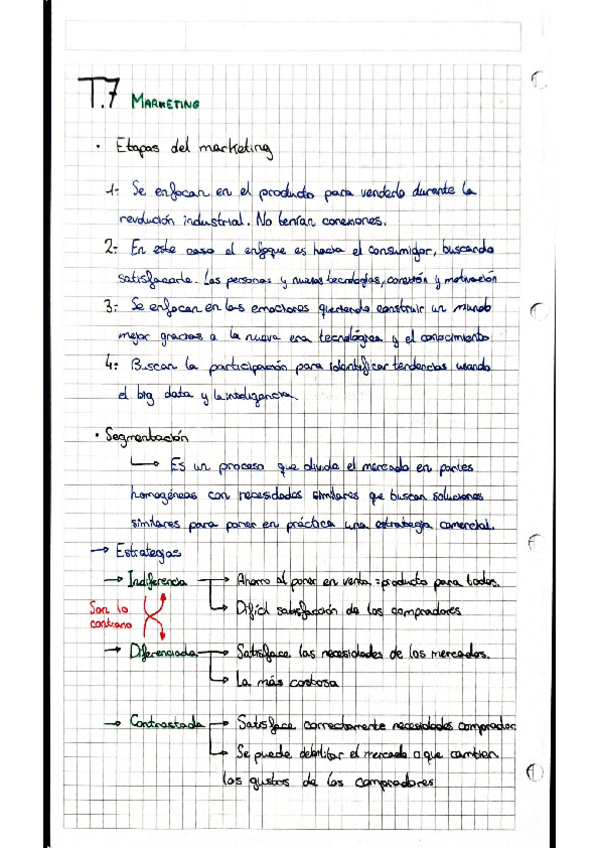 T.7 MARKETING
• Etapas del marketing
1- Se enfocan en el producto para venderlo durante la
revolución industrial. No tenían conexiones.
2- En este caso el enfoque es hacia el consumidor, buscando
satisfacerle. Las personas y nuevas tecnologías, conexión y motivación
3- Se enfocan en las emociones queriendo construir un mundo
mejor gracias a la nueva era tecnológica y el conocimiento
4- Buscan la participación para identificar tendencias usando
el big data y la inteligencia.
• Segmentación
Es un proceso que divide el mercado en partes
homogéneas con necesidades similares que buscan soluciones
similares para poner en práctica una estrategia comercial.
→ Estrategias
→ Indiferencia → Ahorro al poner en venta =producto para todos.
→ Difícil satisfacción de los compradores
Son lo
contrario
→ Diferenciada → Satisface las necesidades de los mercados.
→ La más costosa
→ Contrastada → Satisface correctamente necesidades comprador
→ Se puede debilitar el mercado o que cambien
los gustos de los compradores